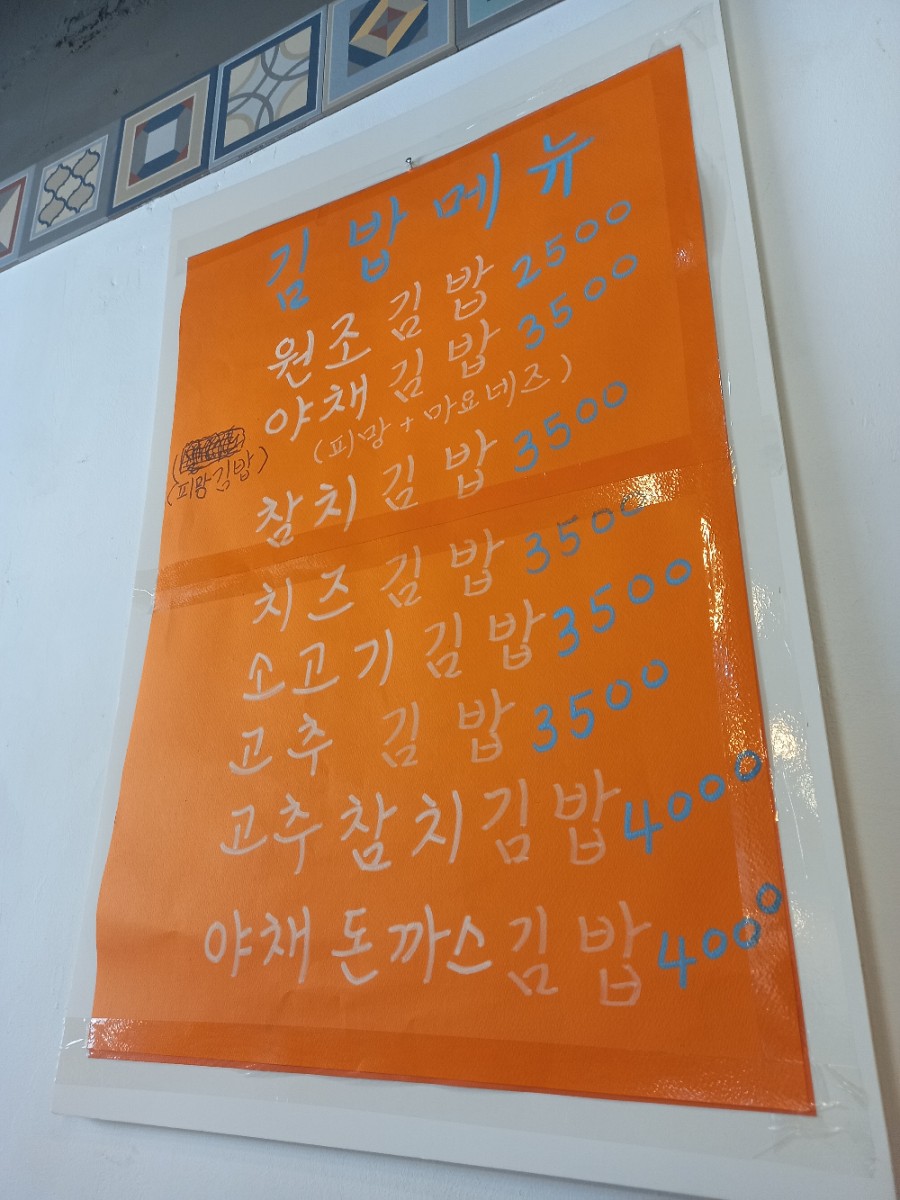 김밥메뉴
원조김밥 2500
야채김밥 3500
(피망+마요네즈)
(피망김밥)
참치김밥 3500
치즈김밥 3500
소고기김밥 3500
고추 김밥 3500
고추참치김밥 4000
야채돈까스김밥 4000